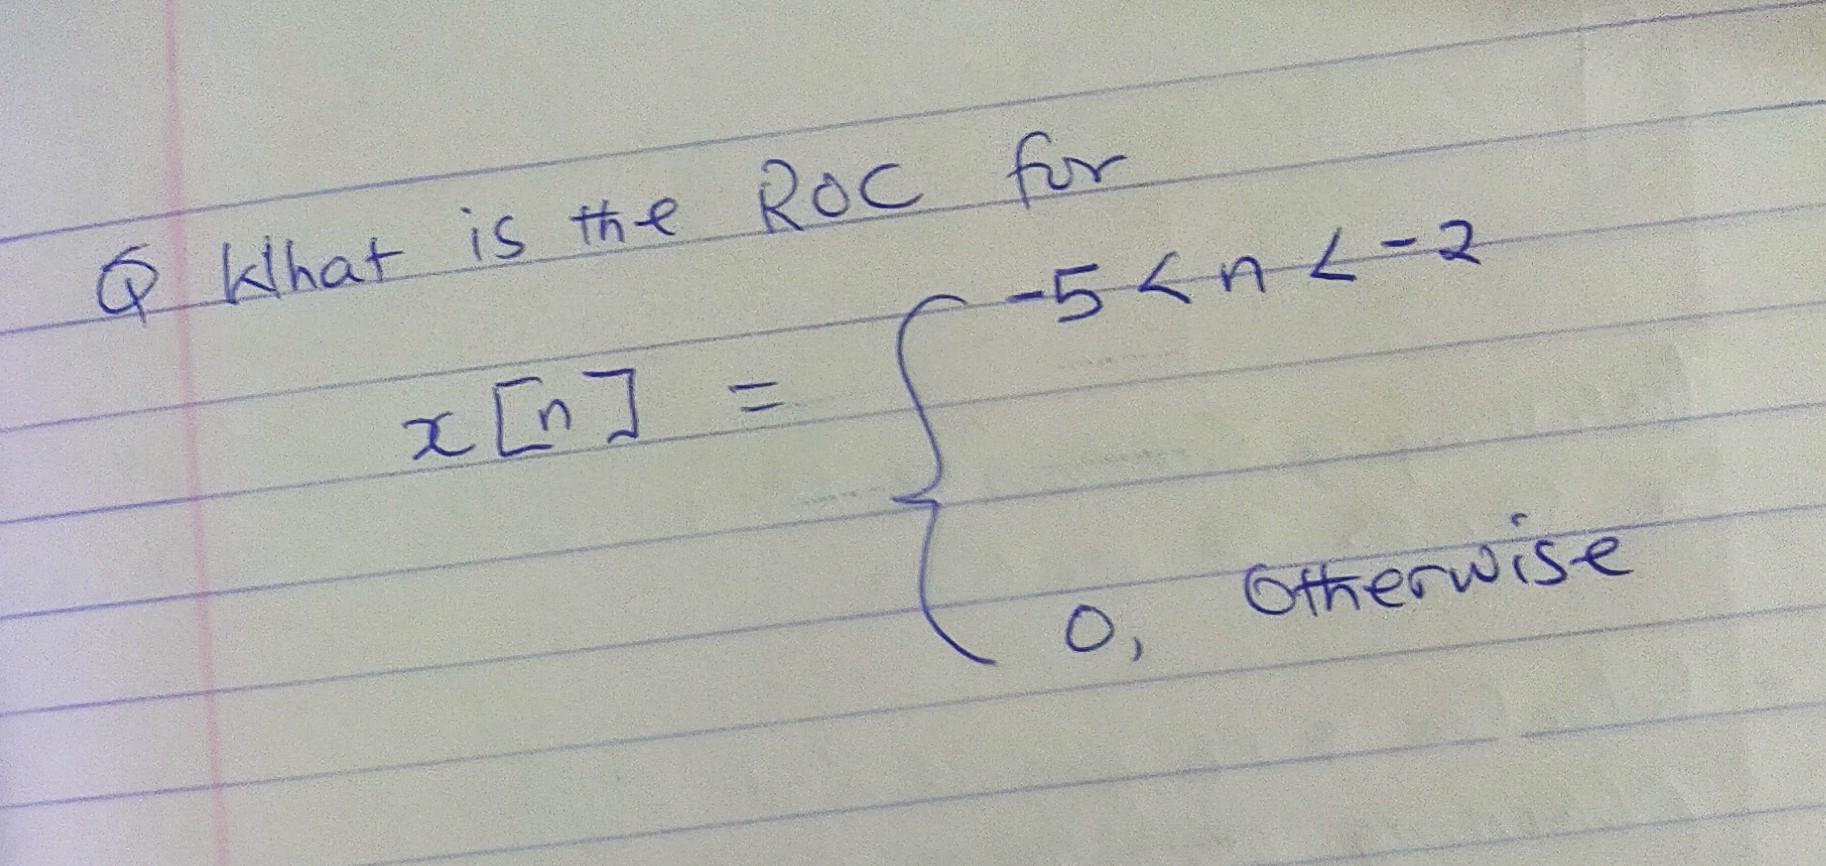 Q What is the ROC for
x[n] = { -5 < n < -2
0, Otherwise